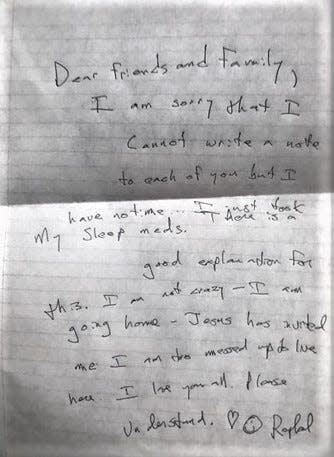 Dear friends and Family,
I am sorry that I
Cannot write a note
to each of you but I
have no time... I just took
My Sleep meds. There is a
good explanation for
this. I am not crazy – I am
going home – Jesus has invited
me I am too messed up to live
here. I love you all. Please
Understand. ♡